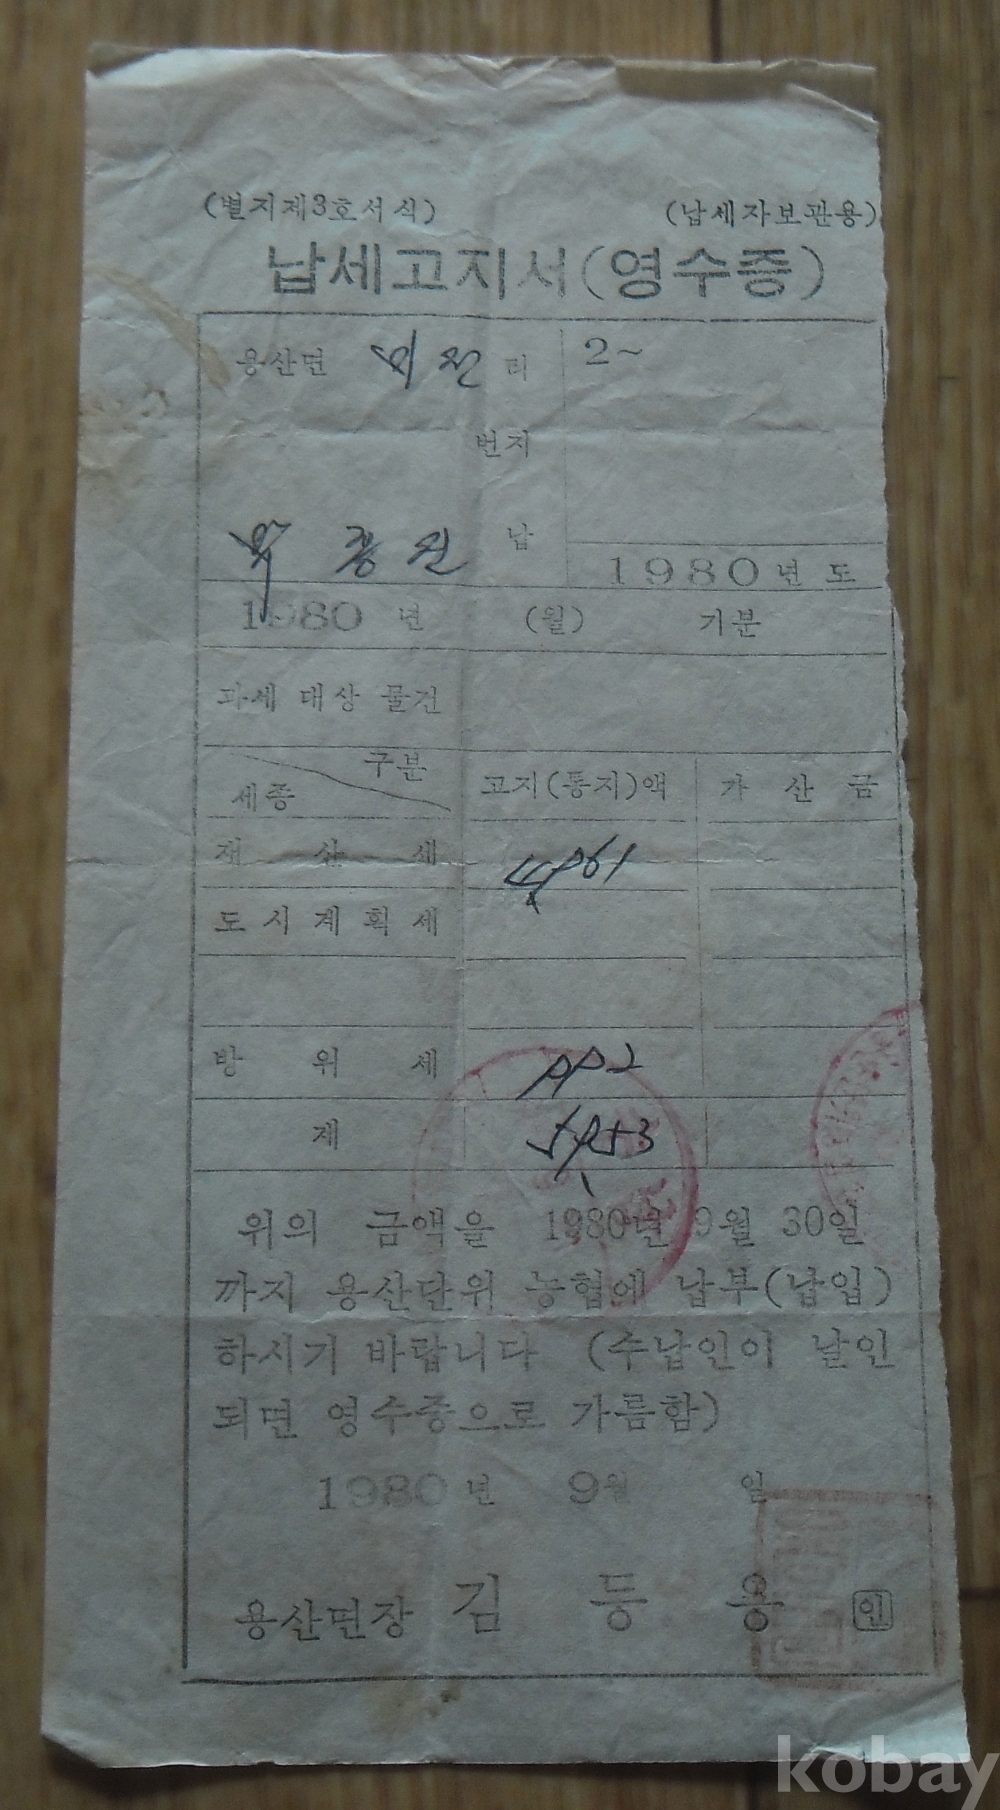 (별지제3호서식) (납세자보관용)
납세고지서(영수증)
용산면 리 2~
번지
납
1980년도
1980년 (월) 기분
과세 대상 물건
구분
세종 고지(통지)액 가산금
재산세
도시계획세
방위세
계
위의 금액을 1980년 9월 30일
까지 용산단위 농협에 납부(납입)
하시기 바랍니다 (수납인이 날인
되면 영수증으로 가름함)
1980년 9월 일
용산면장 김등용 인
kobay